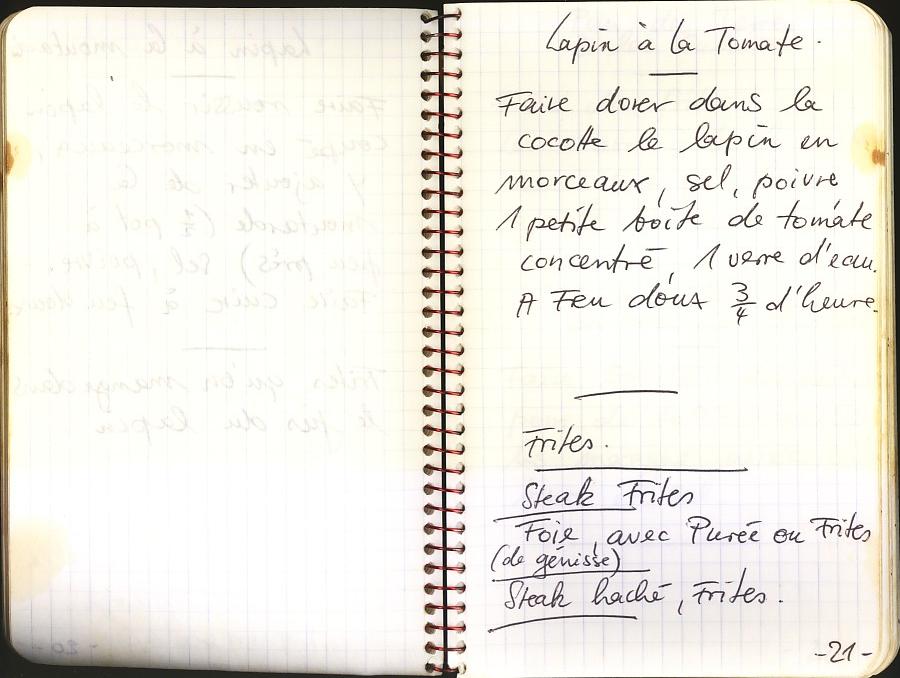 Lapin à la Tomate.
Faire dorer dans la
cocotte le lapin en
morceaux, sel, poivre
1 petite boîte de tomate
concentré, 1 verre d'eau.
A Feu doux 3/4 d'heure.
Frites.
Steak Frites
Foie, avec Purée ou Frites
(de génisse)
Steak haché, Frites.
-21-